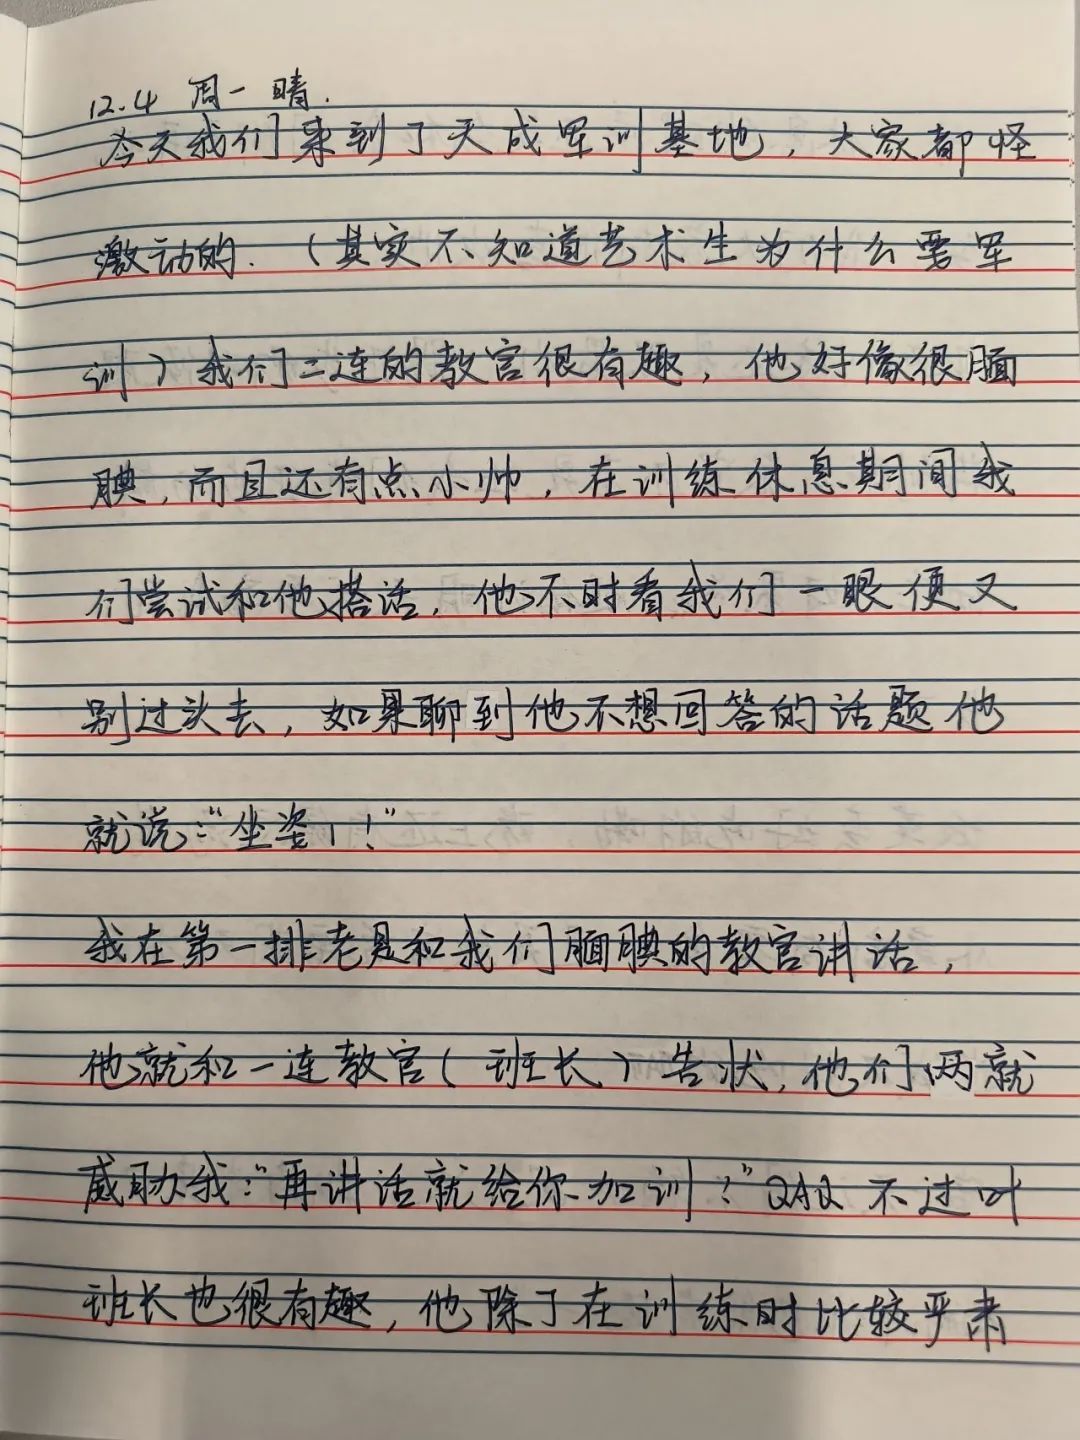 12.4 周一 晴.
今天我们来到了天成军训基地，大家都怪
激动的.（其实不知道艺术生为什么要军
训）我们三连的教官很有趣，他好像很腼
腆，而且还有点小帅，在训练休息期间我
们尝试和他搭话，他不时看我们一眼便又
别过头去，如果聊到他不想回答的话题他
就说:“坐姿！!”
我在第一排老是和我们腼腆的教官讲话，
他就和一连教官（班长）告状，他们两就
威胁我:“再讲话就给你加训！”QAQ 不过叶
班长也很有趣，他除了在训练时比较严肃